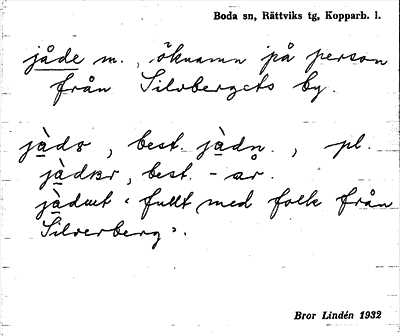 Boda sn, Rättviks tg, Kopparb. l.
jåde m., öknamn på person
från Silvbergets by.
best. jàdn., pl.
best. -ar.
‹ fullt med folk från
Silverberg ›.
Bror Lindén 1932